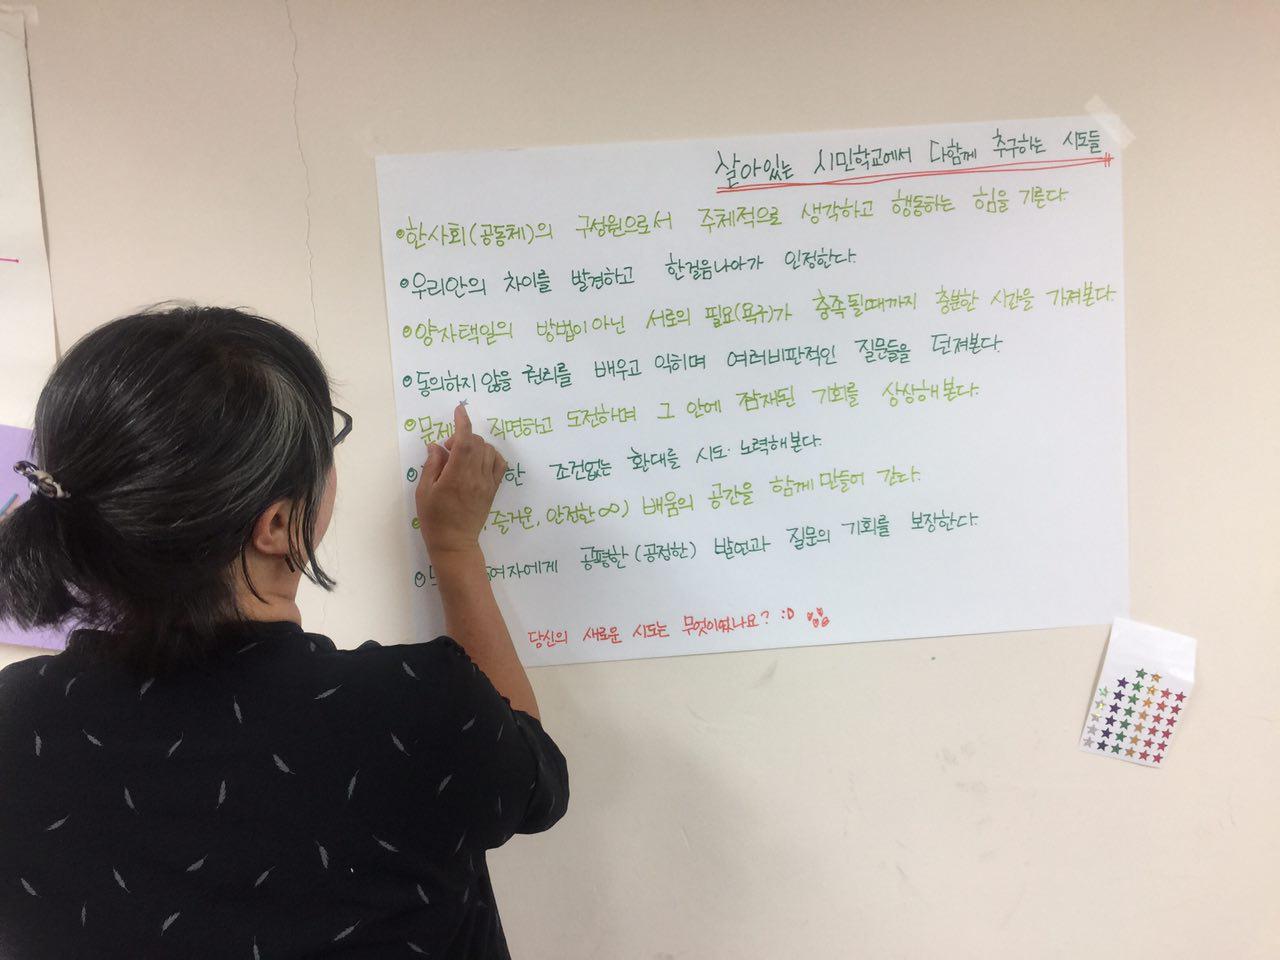 살아있는 시민학교에서 다함께 추구하는 시도들
한사회(공동체)의 구성원으로서 주체적으로 생각하고 행동하는 힘을 기른다.
우리안의 차이를 발견하고 한걸음나아가 인정한다.
양자택일의 방법이아닌 서로의 필요(욕구)가 충족될때까지 충분한 시간을 가져본다.
동의하지 않을 권리를 배우고 익히며 여러비판적인 질문들을 던져본다.
직면하고 도전하며 그 안에 잠재된 기회를 상상해본다.
조건없는 환대를 시도·노력해본다.
즐거운, 안전한∞) 배움의 공간을 함께 만들어 간다.
공평한(공정한) 발언과 질문의 기회를 보장한다.
당신의 새로운 시도는 무엇이었나요? :D